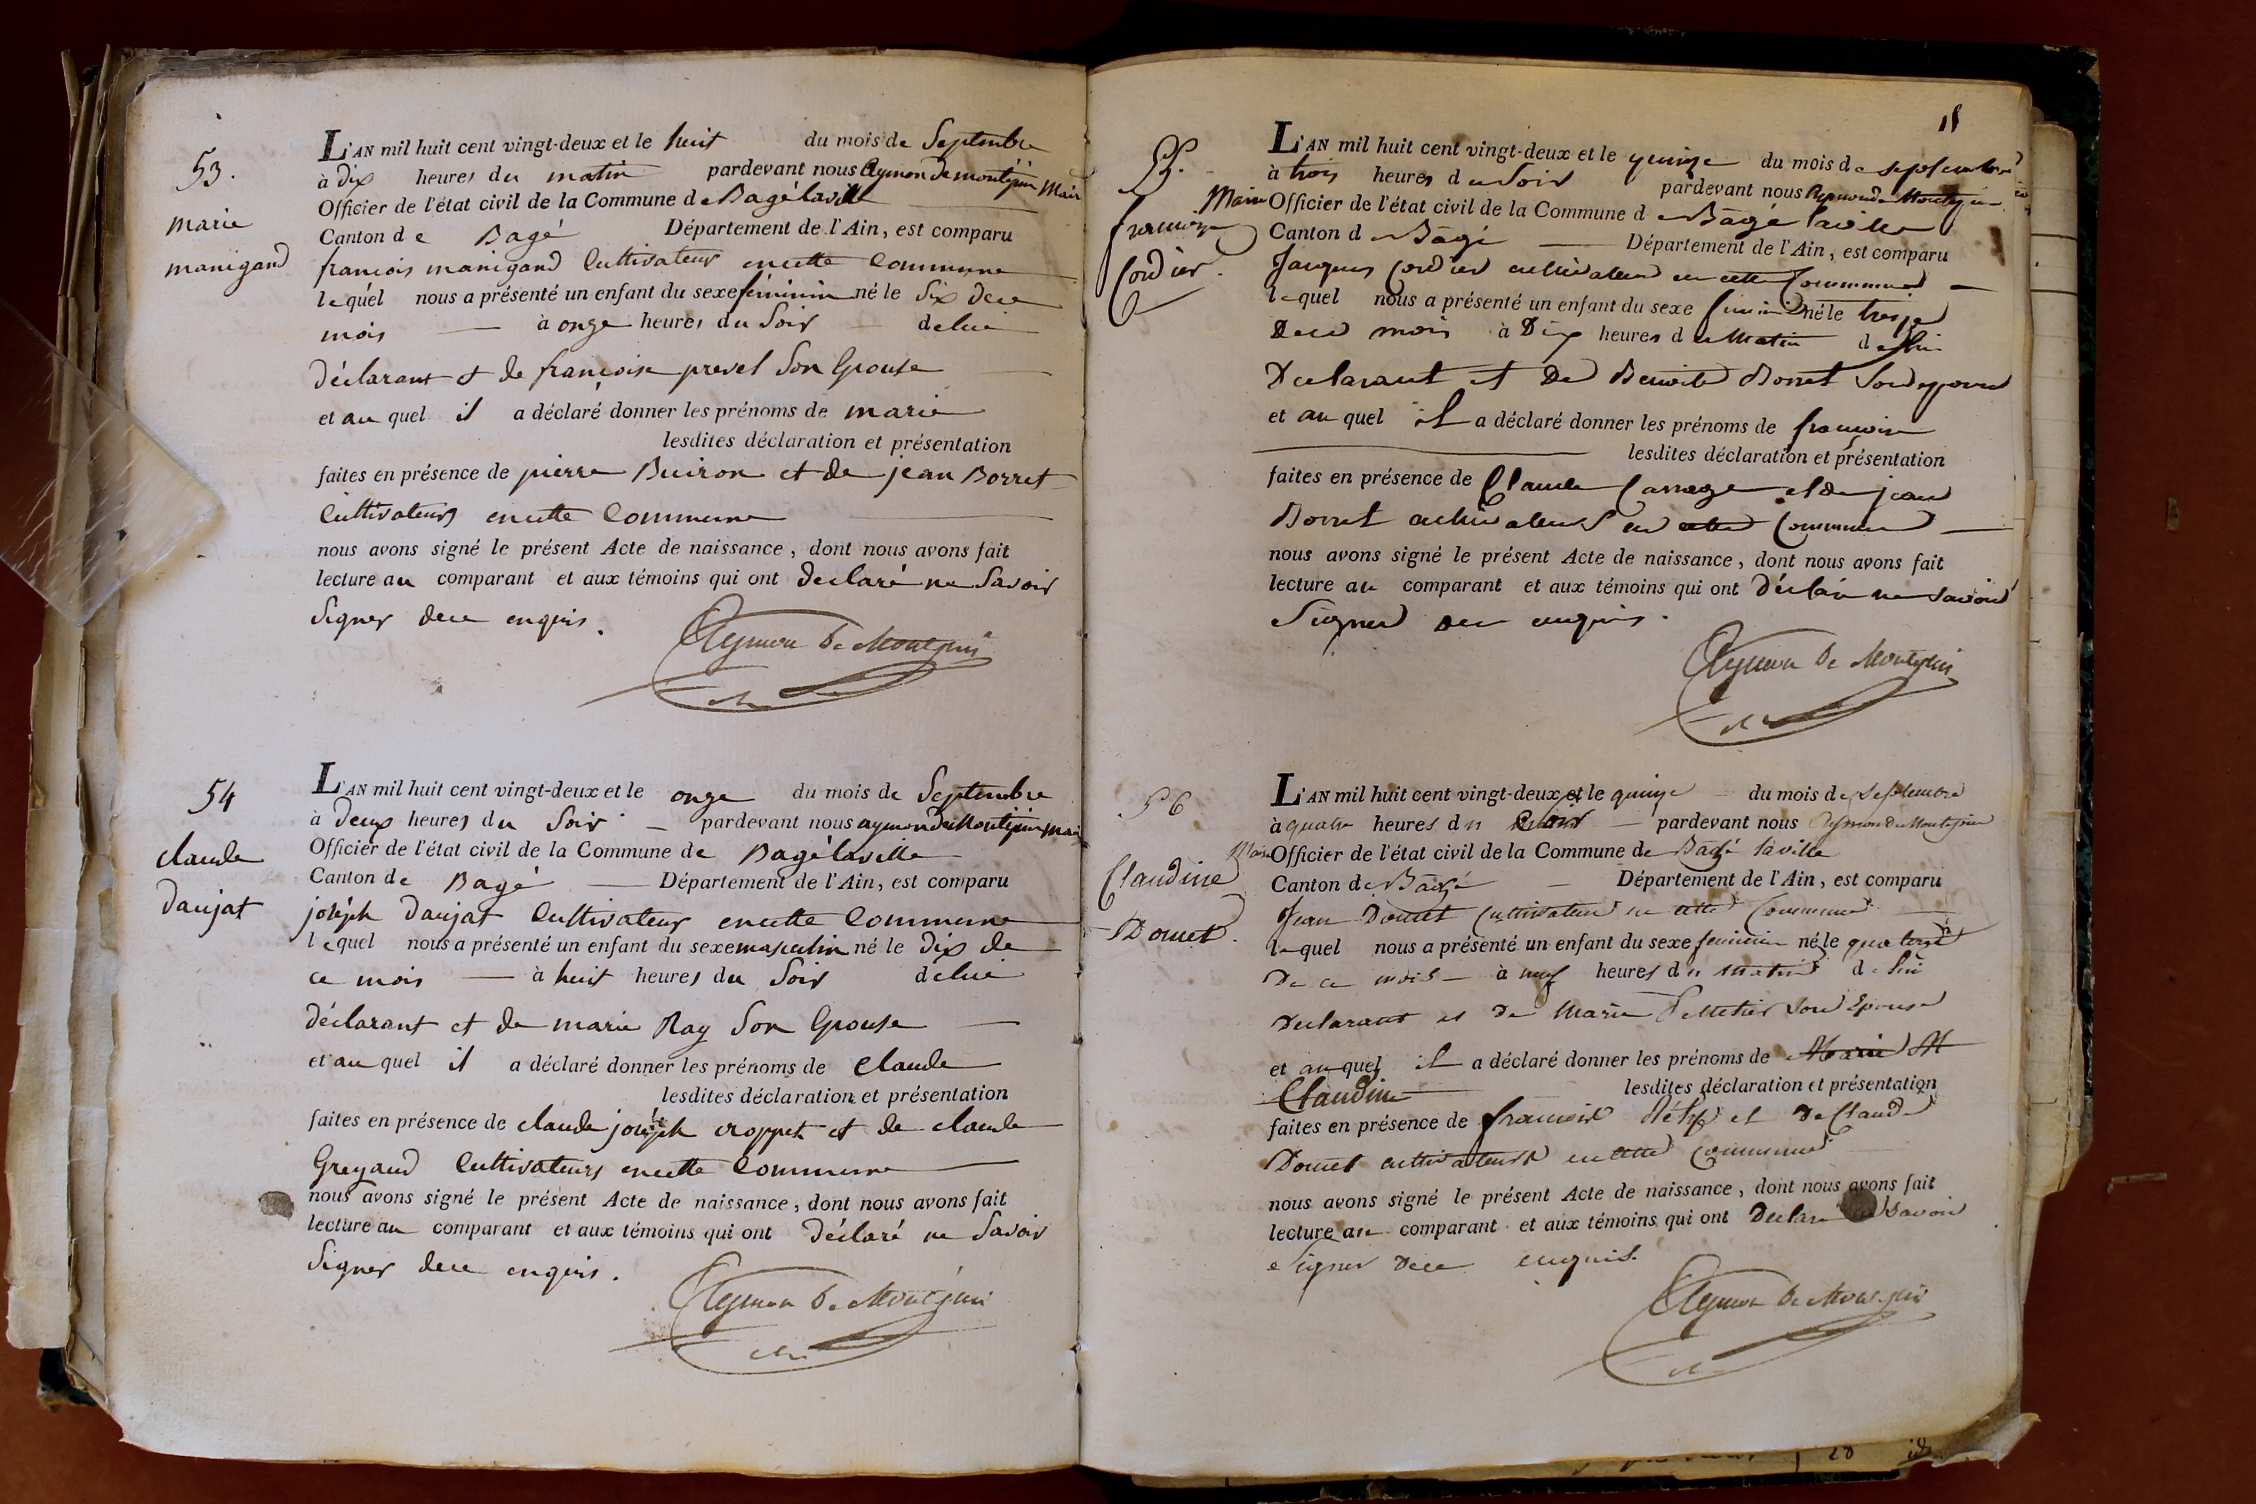 53.
marie
manigand
L'AN mil huit cent vingt-deux et le huit du mois de Septembre
à dix heures du matin pardevant nous Aymon de montépin Maire
Officier de l'état civil de la Commune de Bagé laville
Canton de Bagé Département de l'Ain, est comparu
francois manigand Cultivateur en cette Commune
lequel nous a présenté un enfant du sexe féminin né le Six de ce
mois à onze heures du Soir de lui
déclarant et de françoise prevel Son Epouse
et au quel il a déclaré donner les prénoms de marie
lesdites déclaration et présentation
faites en présence de pierre Buiron et de jean Borret
Cultivateurs en cette Commune
nous avons signé le présent Acte de naissance, dont nous avons fait
lecture au comparant et aux témoins qui ont declaré ne Savoir
Signer de ce enquis.
Aymon de Montépin
54
claude
daujat
L'AN mil huit cent vingt-deux et le onze du mois de Septembre
à deux heures du Soir pardevant nous aymon de Montépin Maire
Officier de l'état civil de la Commune de Bagé laville
Canton de Bagé Département de l'Ain, est comparu
joseph daujat Cultivateur en cette Commune
lequel nous a présenté un enfant du sexe masculin né le dix de
ce mois à huit heures du Soir de lui
déclarant et de marie Ray Son Epouse
et au quel il a déclaré donner les prénoms de claude
lesdites déclaration et présentation
faites en présence de claude joseph croppet et de claude
Greyaud Cultivateurs en cette Commune
nous avons signé le présent Acte de naissance, dont nous avons fait
lecture au comparant et aux témoins qui ont déclaré ne Savoir
Signer de ce enquis.
Aymon de Montépin
55.
francoise
Cordier.
L'AN mil huit cent vingt-deux et le quinze du mois de septembre
à trois heures du Soir pardevant nous Aymon de Montépin
Maire Officier de l'état civil de la Commune de Bagé laville
Canton de Bagé Département de l'Ain, est comparu
Jacques Cordier cultivateur en cette Commune
lequel nous a présenté un enfant du sexe feminin né le treize
de ce mois à Dix heures du Matin de lui
Declarant et De Benoite Borret Son epouse
et au quel il a déclaré donner les prénoms de francoise
lesdites déclaration et présentation
faites en présence de Claude et de jean
Borret cultivateurs en cette Commune
nous avons signé le présent Acte de naissance, dont nous avons fait
lecture au comparant et aux témoins qui ont Déclaré ne savoir
Signer de ce enquis.
Aymon de Montépin
56
Claudine
Domet.
L'AN mil huit cent vingt-deux et le quinze du mois de Septembre
à quatre heures du Soir pardevant nous Aymon de Montépin
Maire Officier de l'état civil de la Commune de Bagé laville
Canton de Bagé Département de l'Ain, est comparu
Jean Domet Cultivateur en cette Commune
lequel nous a présenté un enfant du sexe feminin né le quatorze
De ce mois à neuf heures du Matin de lui
Declarant et De Marie Pelletier Son Epouse
et au quel il a déclaré donner les prénoms de Marie M
Claudine lesdites déclaration et présentation
faites en présence de francois et De Claude
Domet cultivateurs en cette Commune
nous avons signé le présent Acte de naissance, dont nous avons fait
lecture au comparant et aux témoins qui ont Declaré savoir
Signer De ce enquis.
Aymon de Montépin